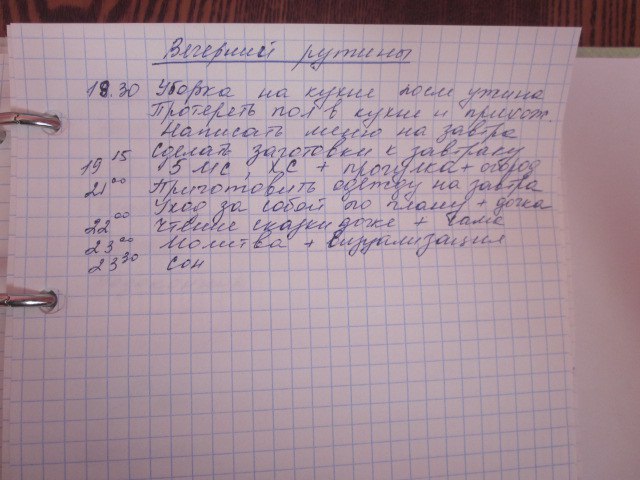 Вечерний рутины
18.30 Уборка на кухне после ужина
Протереть пол в кухне и прихож.
Написать меню на завтра
Сделать заготовки к завтраку
19 15 5 МС, КС + прогулка + огород
21 00 Приготовить одежду на завтра
Уход за собой по плану + дочка
22 00 Чтение сказки дочке +
23 00 Молитва + Визуализация
23 30 сон